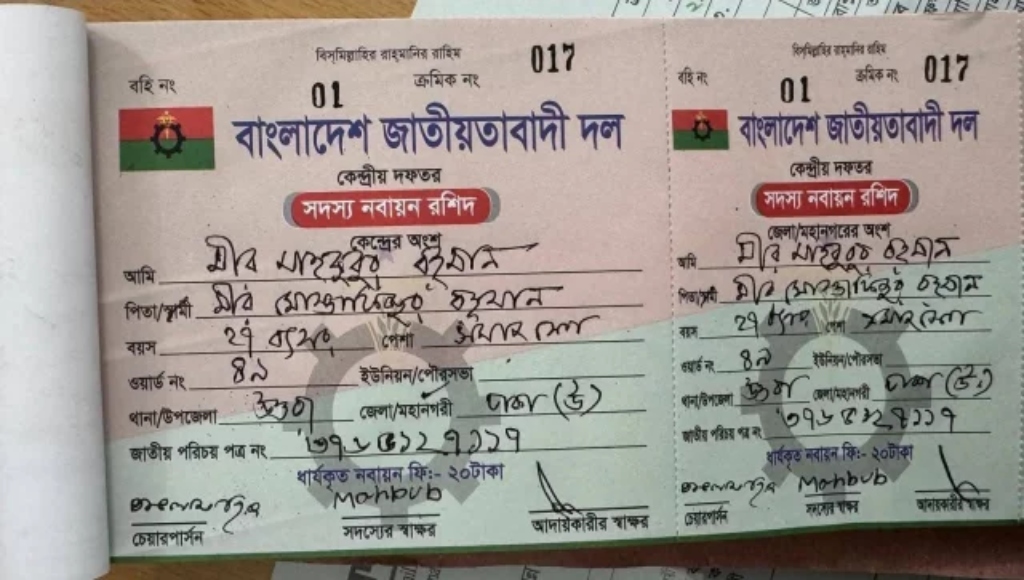 বিস্‌মিল্লাহির রাহ্‌মানির রাহিম
বহি নং 01 ক্রমিক নং 017
বাংলাদেশ জাতীয়তাবাদী দল
কেন্দ্রীয় দফতর
সদস্য নবায়ন রশিদ
কেন্দ্রের অংশ
আমি মীর মাহবুবুর রহমান
পিতা/স্বামী মীর রহমান
বয়স ২৭ বৎসর পেশা
ওয়ার্ড নং ৪৯ ইউনিয়ন/পৌরসভা
থানা/উপজেলা উত্তরা জেলা/মহানগরী ঢাকা (উঃ)
জাতীয় পরিচয় পত্র নং
ধার্যকৃত নবায়ন ফি:- ২০টাকা
Mahbub
চেয়ারপার্সন সদস্যের স্বাক্ষর আদায়কারীর স্বাক্ষর
বিস্‌মিল্লাহির রাহ্‌মানির রাহিম
বহি নং 01 ক্রমিক নং 017
বাংলাদেশ জাতীয়তাবাদী দল
কেন্দ্রীয় দফতর
সদস্য নবায়ন রশিদ
জেলা/মহানগরের অংশ
আমি মীর মাহবুবুর রহমান
পিতা/স্বামী মীর রহমান
বয়স ২৭ বৎসর পেশা
ওয়ার্ড নং ৪৯ ইউনিয়ন/পৌরসভা
থানা/উপজেলা উত্তরা জেলা/মহানগরী ঢাকা (উঃ)
জাতীয় পরিচয় পত্র নং
ধার্যকৃত নবায়ন ফি:- ২০টাকা
Mahbub
চেয়ারপার্সন সদস্যের স্বাক্ষর আদায়কারীর স্বাক্ষর